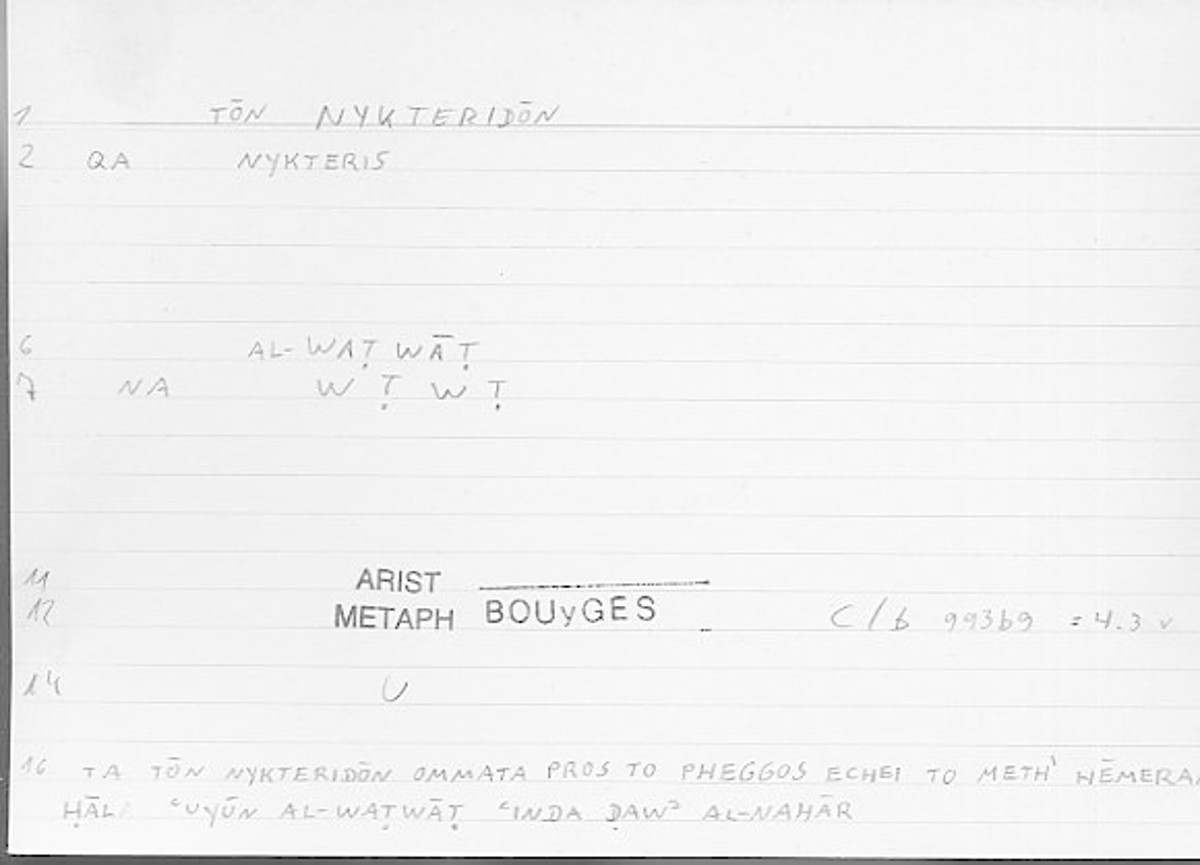 1 TŌN NYKTERIDŌN
2 QA NYKTERIS
6 AL-WAṬWĀṬ
7 NA WṬWṬ
11 ARIST
12 METAPH BOUyGES C/b 993b9 = 4.3
14 U
16 TA TŌN NYKTERIDŌN OMMATA PROS TO PHEGGOS ECHEI TO METH' HĒMERAN
ḤĀL ʿUYŪN AL-WAṬWĀṬ ʿINDA ḌAWʾ AL-NAHĀR